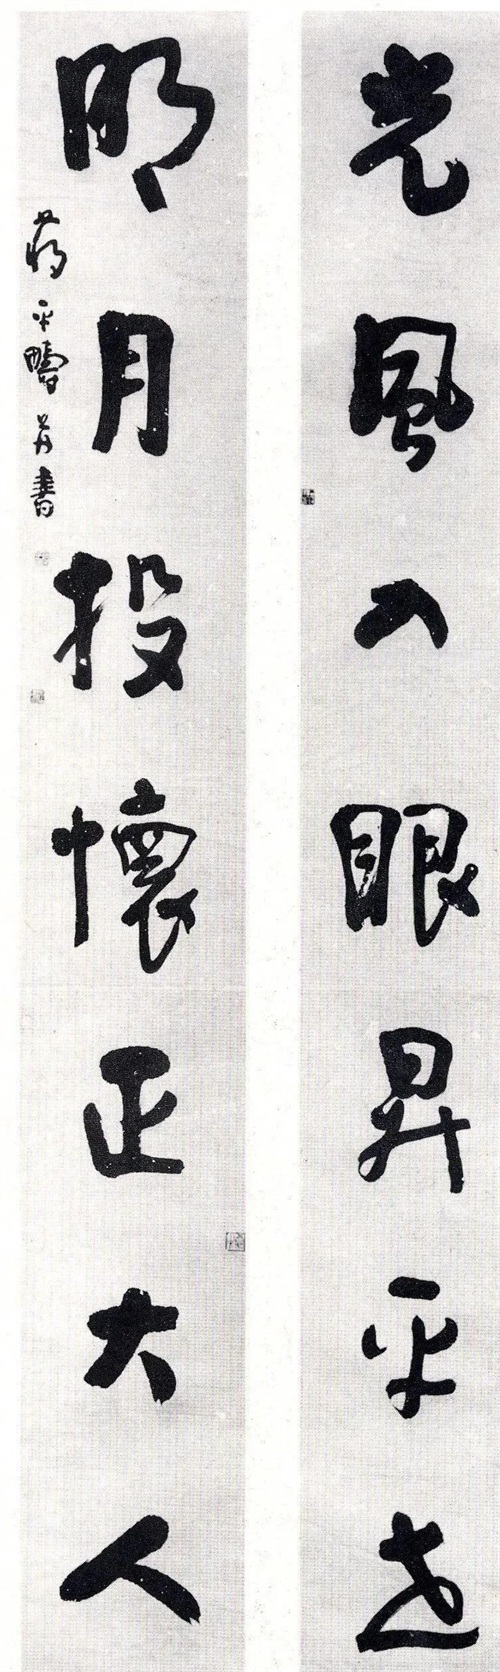 光風入眼昇平世
明月投懷正大人
蒋平疇并書